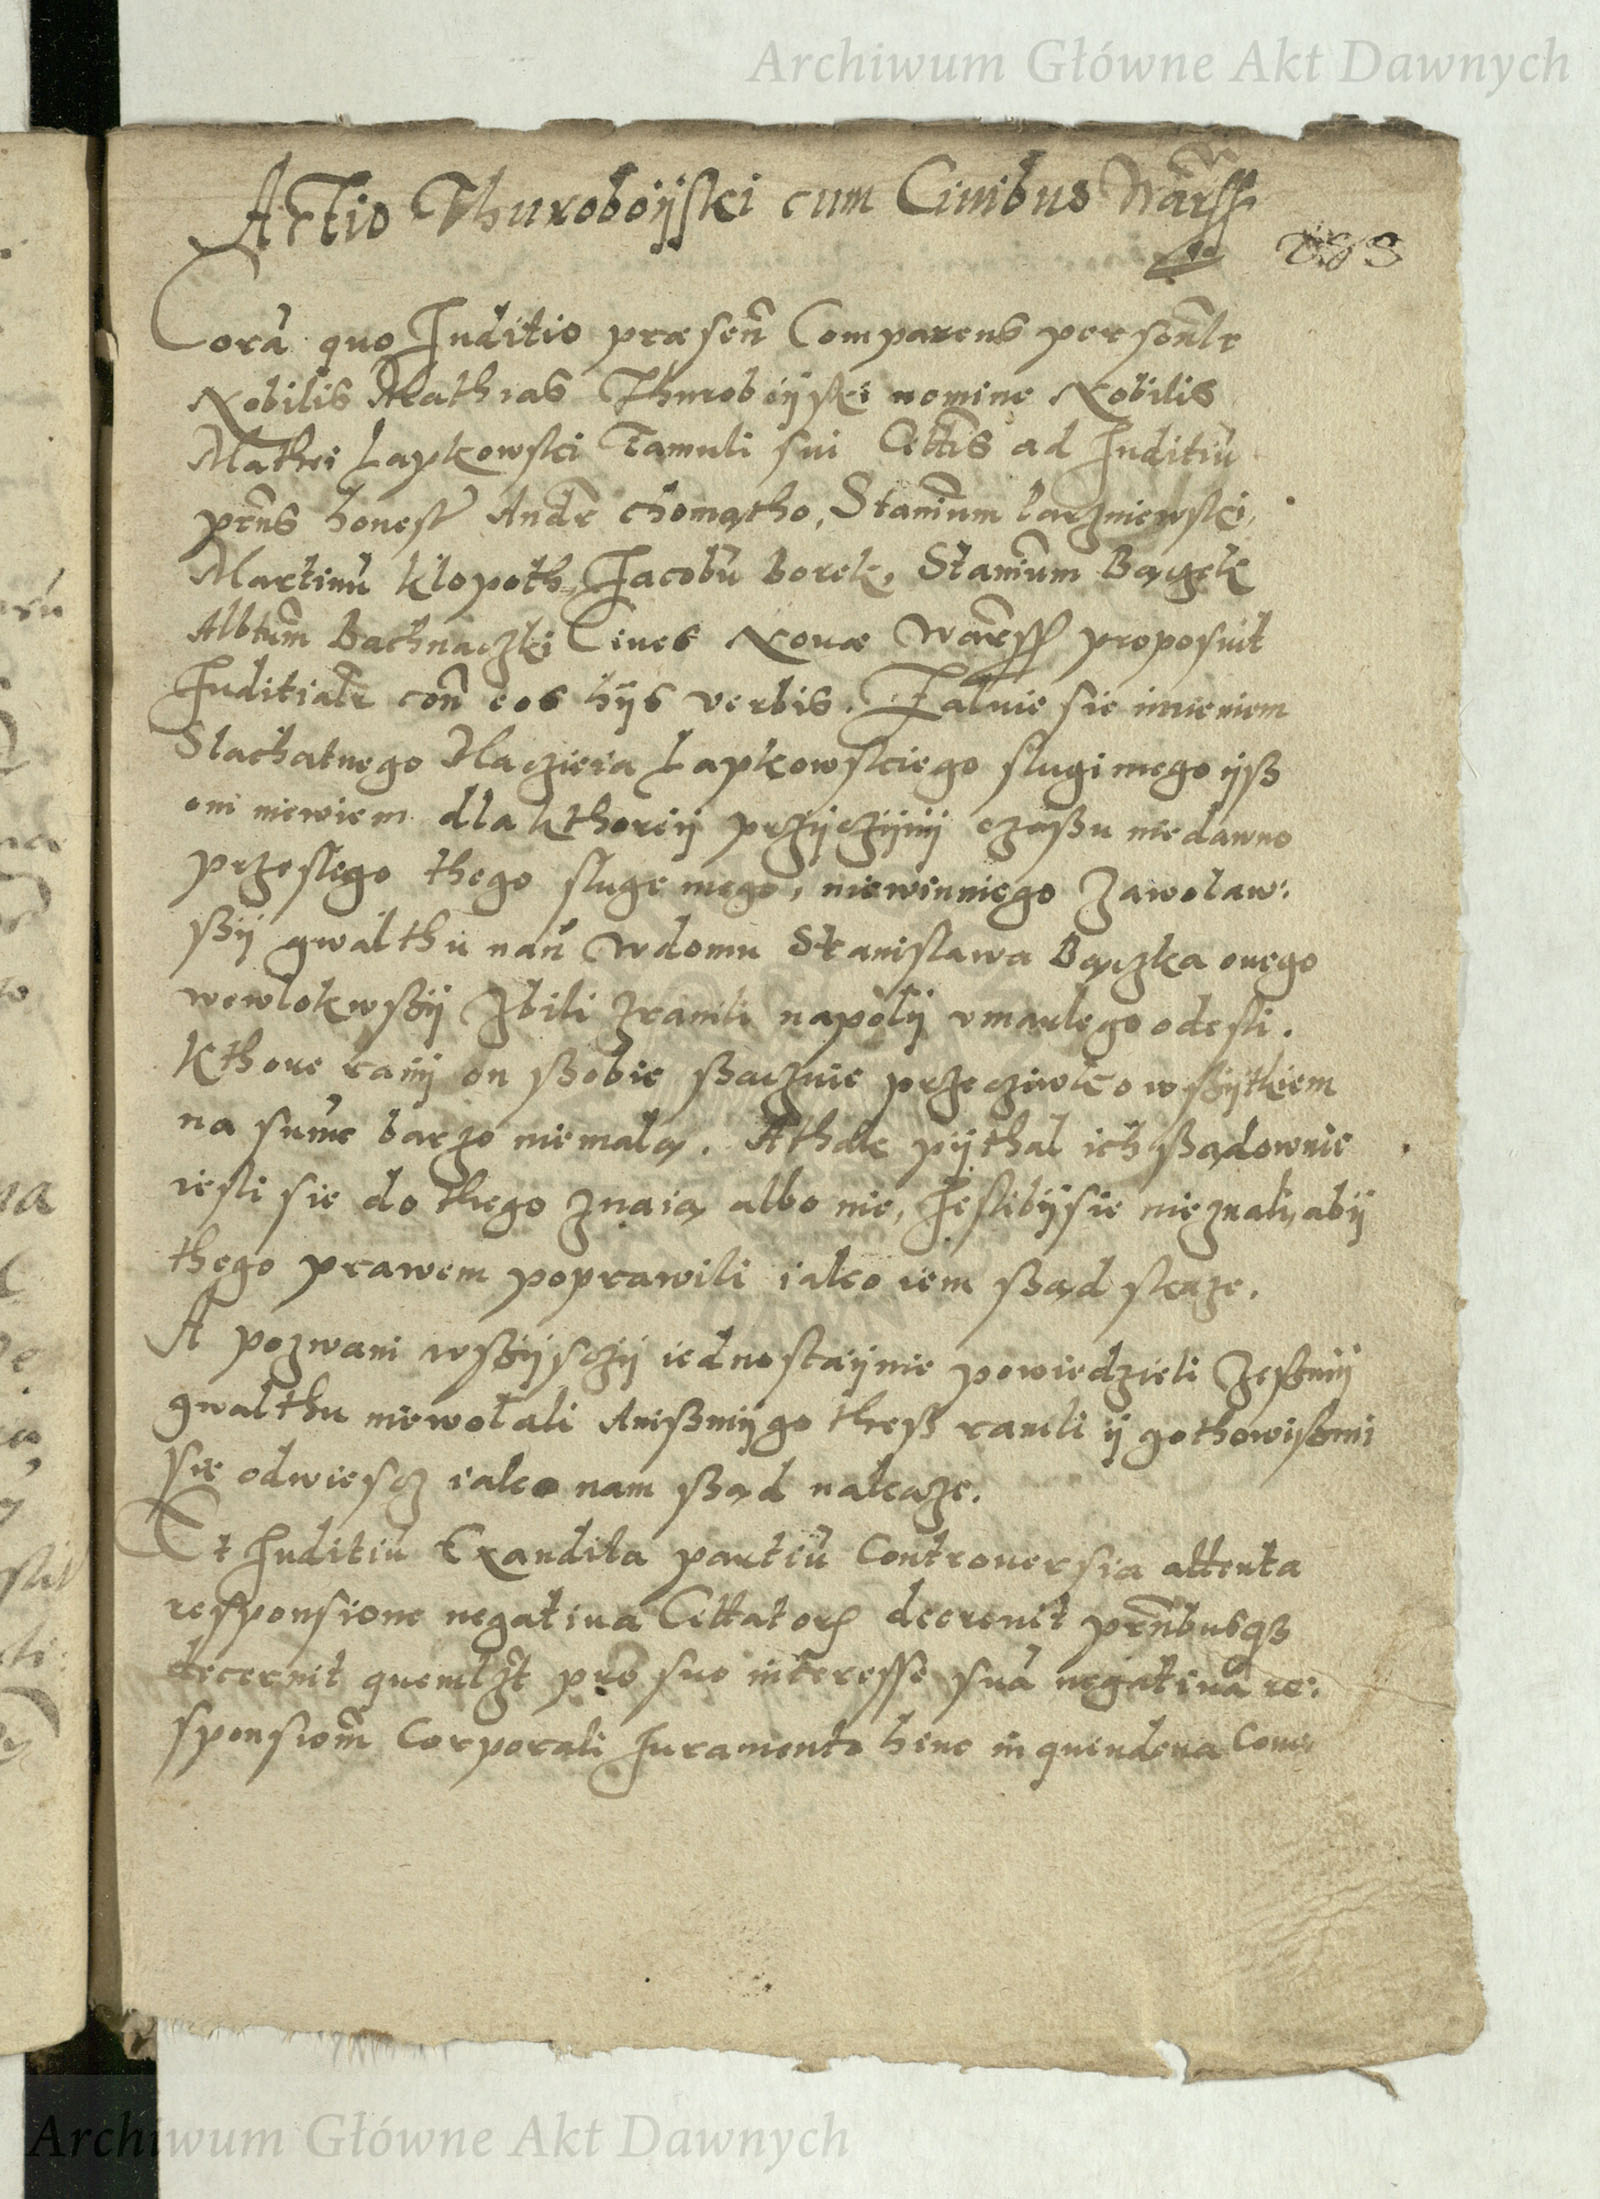 Archiwum Główne Akt Dawnych
Actio Thuroboijski cum Ciuibus Warss
Corā quo Juditio præsen̄ Comparens personlr
Nobilis Mathias Thuroboijski nomine Nobilis
Mathei Lapkowski Famuli sui Cittis ad Juditiū
pn̄s honest Andr̄ chomatho, Stanium Carzniewski,
Martinū klopoth Jacobū borek, Stanium Bączek
Albtum Bachnaczki Ciues Nouæ Warss proposuit
Juditialr con̄ eos hijs verbis. Zaluie sie imieniem
Slachatnego Macziela Lapkowskiego slugi mego ijß
oni niewiem dla kthoreij prziczijnij czaßu niedawno
przeslego thego sluge mego, niewinnego zawolaw:
ßij gwalthu nan̄ w domu Stanislawa Bączka onego
wewlokwßij zbili zranili napolij vmarlego odesli.
kthore ranij on ßobie ßacznie przecziwko wßijtkiem
na sumē barzo niemalą. A thak pijthal ich ßądownie
iesli sie do thego znaią albo nie, Jeslibij sie nieznali, abij
thego prawem poprawili iako iem ßąd skaze.
A pozwani wßijsczij iednostaijnie powiedzieli zesmij
gwalthu niewolali Anißmij go theß ranili ij gothowißmi
sie odwiescz iako nam ßąd nakaze.
Et Juditiū Exaudita partiū Controuersia attenta
responsione negatiua Cittatorum decreuit pn̄tibusqß
decernit quemlʒt pro suo interesse suā negatiuā re:
sponsionem Corporali Juramento hinc in quindena Com
Archiwum Główne Akt Dawnych